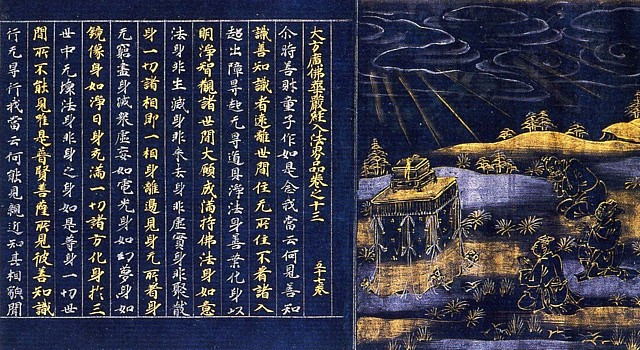 大方廣佛華嚴經入法界品卷之十三 五十七卷
尒時善財童子作如是念我當云何見善知
識善知識者遠離世間住无所住不著諸入
超出障导起无导道具淨法身善業化身以
明淨智觀諸世間大願成滿持佛法身如意
法身非生滅身非来去身非虛實身非聚散
身一切諸相即一相身離邊見身无所著身
无窮盡身滅衆虛妄如電光身如幻夢身如
鏡像身如淨日身充滿一切諸方化身於三
世中无壞法身非身之身如是等身一切世
間所不能見唯是普賢菩薩所見彼善知識
行无导行我當云何能見親近知其相貌聞